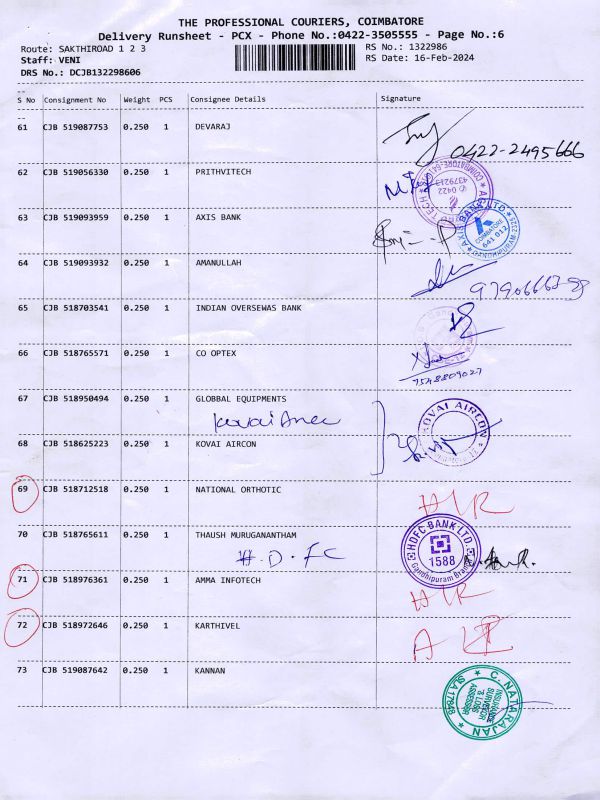 THE PROFESSIONAL COURIERS, COIMBATORE
Delivery Runsheet - PCX - Phone No.:0422-3505555 - Page No.:6
Route: SAKTHIROAD 1 2 3
RS No.: 1322986
Staff: VENI
RS Date: 16-Feb-2024
DRS No.: DCJB132298606
S No Consignment No Weight PCS Consignee Details Signature
61 CJB 519087753 0.250 1 DEVARAJ
0422-2495666
62 CJB 519056330 0.250 1 PRITHVITECH
0422
4379213
63 CJB 519093959 0.250 1 AXIS BANK
AXIS BANK LTD.
COIMBATORE
641 012
64 CJB 519093932 0.250 1 AMANULLAH
65 CJB 518703541 0.250 1 INDIAN OVERSEWAS BANK
66 CJB 518765571 1 0.250 CO OPTEX
7548809027
67 CJB 518950494 0.250 1 GLOBBAL EQUIPMENTS
Kovai Aircon
KOVAI AIRCON
68 CJB 518625223 0.250 1 KOVAI AIRCON
69 CJB 518712518 0.250 1 NATIONAL ORTHOTIC
70 CJB 518765611 0.250 1 THAUSH MURUGANANTHAM
H.D.FC
HDFC BANK LTD.
1588
Gandhipuram Branch
71 CJB 518976361 0.250 1 AMMA INFOTECH
72 CJB 518972646 0.250 1 KARTHIVEL
73 CJB 519087642 0.250 1 KANNAN
C. NATARAJAN
INSURANCE
SURVEYOR
& LOSS
ASSESSOR
SLA17848